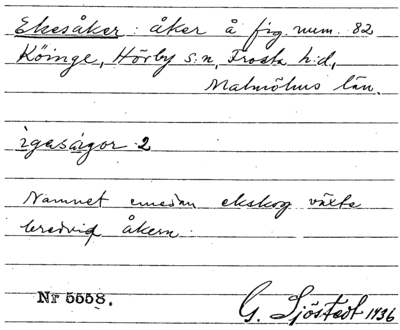 Ekesåker: åker å fig. num. 82
Köinge, Hörby s:n, Frosta h:d,
Malmöhus län.
2
Namnet emedan ekskog växte
bredvid åkern.
Nr 5558.
G. Sjöstedt 1936